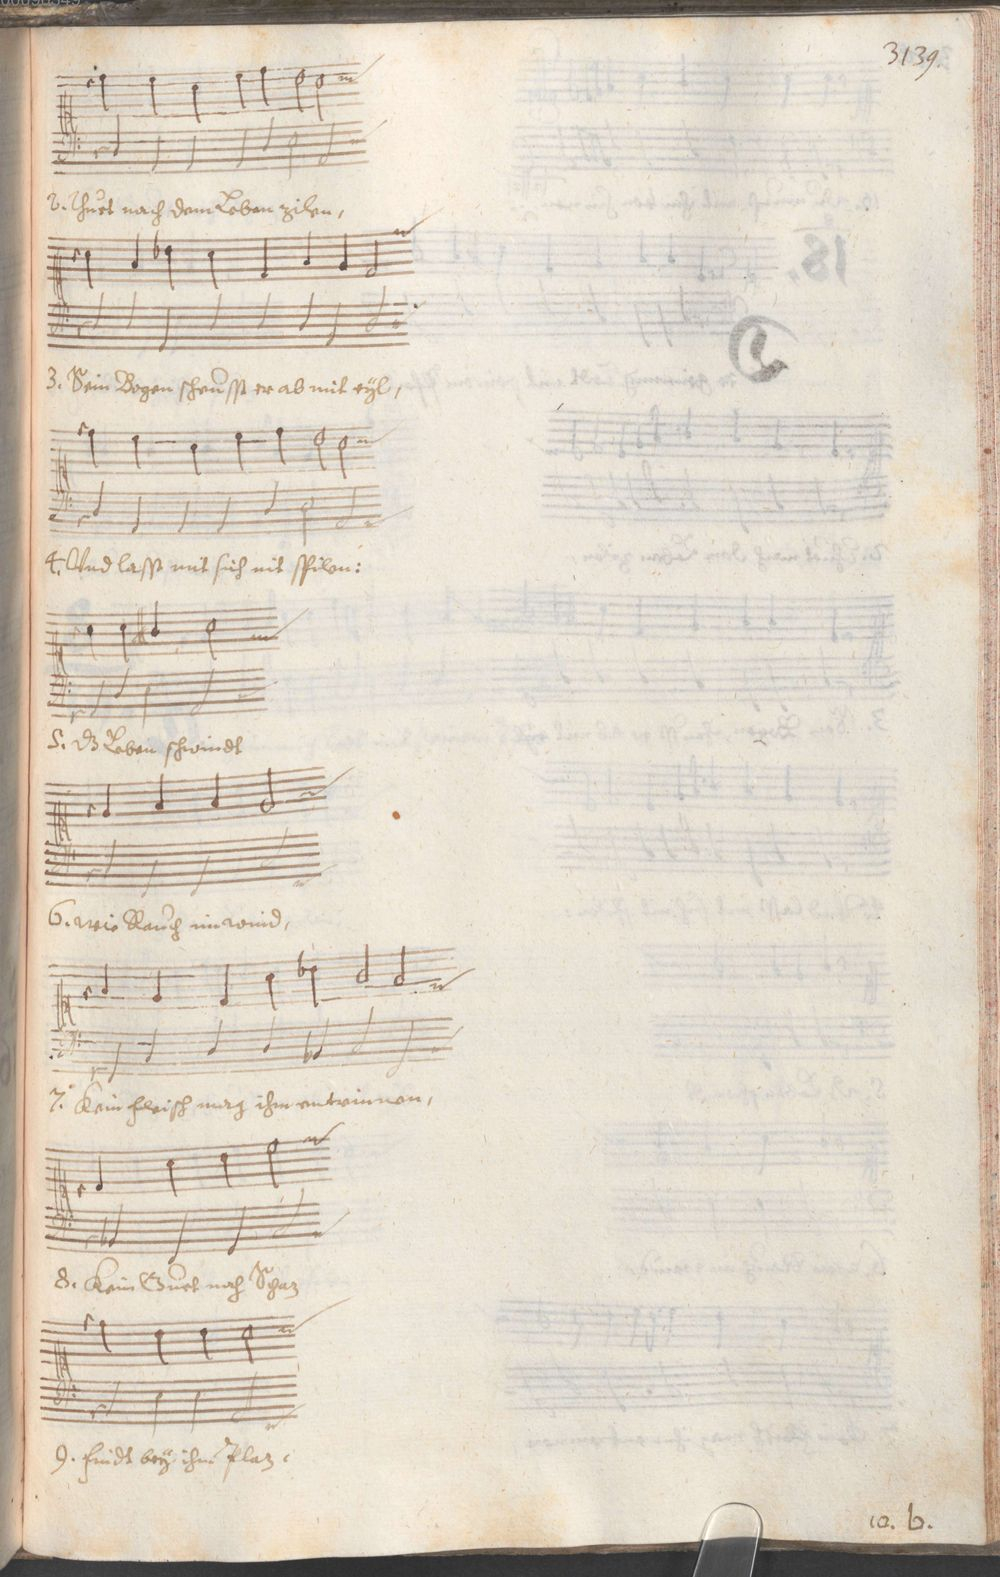 3139.
2. Thuet nach dem Leben zilen,
3. Sein Bogen scheusst er ab mit eyl,
4. Und lasst mit sich nit spilen:
5. Dz Leben schwindt
6. wie Rauch im wind,
7. Kein fleisch mag ihm entrinnen,
8. Kein Guet noch Schaz
9. findt bey ihm Plaz:
10. b.